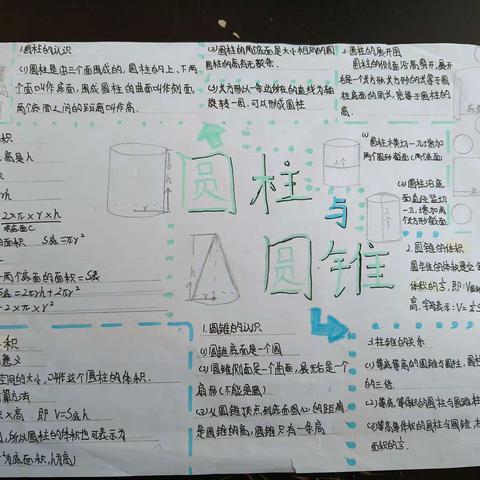 1.圆柱的认识
(1)圆柱是由三个面围成的,圆柱的上、下两
个面叫作底面,围成圆柱的曲面叫作侧面,
两个底面之间的距离叫作高.
(2)圆柱的两底面是大小相同的圆
圆柱的高有无数条.
(3)长方形以一条边所在的直线为轴
旋转一圈,可以形成圆柱
2.圆柱的展开图
圆柱的侧面沿高剪开,展开
后是一个长方形,长方形的长等于圆
柱底面的周长,宽等于圆柱的
高.
(1)圆柱横切一刀增加
两个圆形截面(两个底面)
(2)圆柱沿底
面直径竖切
一刀,增加两
个长方形截面.
圆柱
与
圆锥
积
高是h
2×π×r×h
底面周长C
面积 S底=πr²
两个底面的面积=S表
S表=2πrh+2πr²
2×π×r²
积
意义
空间的大小,叫作这个圆柱的体积.
算方法
积×高.即V=S底h
所以圆柱的体积也可表示为
为底面积,h为高)
1.圆锥的认识
(1)圆锥底面是一个圆
(2)圆锥侧面是一个曲面,展开后是一个
扇形(不能是圆)
(3)从圆锥顶点到底面圆心的距离
是圆锥的高,圆锥只有一条高
2.圆锥的体积
体积的1/3,即:V圆锥
高.字母表示:V=1/3S
3.柱锥的关系
(1)等底等高的圆锥与圆柱,圆柱
的三倍.
(2)等底等体积的圆柱与圆锥
(3)等高等体积的圆柱与圆锥,
面积的1/3.